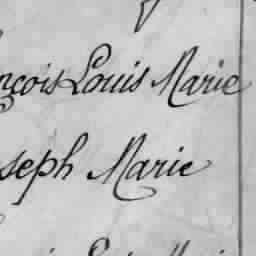 nçois Louis Marie
seph Marie